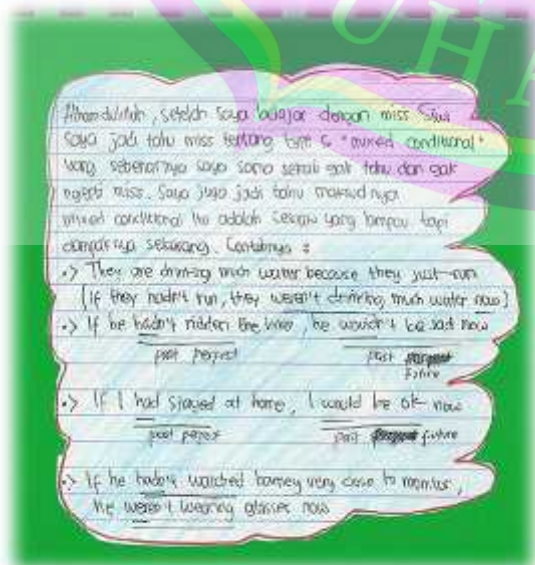 UH
Alhamdulillah, setelah saya belajar dengan miss
saya jadi tahu miss tentang "mixed conditional"
yang sebenarnya saya sama sekali gak tahu dan gak
ngerti miss. Saya juga jadi tahu maksudnya
mixed conditional itu adalah sesuatu yang lampau tapi
dampaknya sekarang. Contohnya :
.> They are drinking much water because they just run
(If they hadn't run, they weren't drinking much water now)
.> If he hadn't ridden the bike, he wouldn't be sad now
past perfect past future
.> If I had stayed at home, I would be ok now
past perfect past future
.> If he hadn't watched barney very close to monitor,
he weren't wearing glasses now